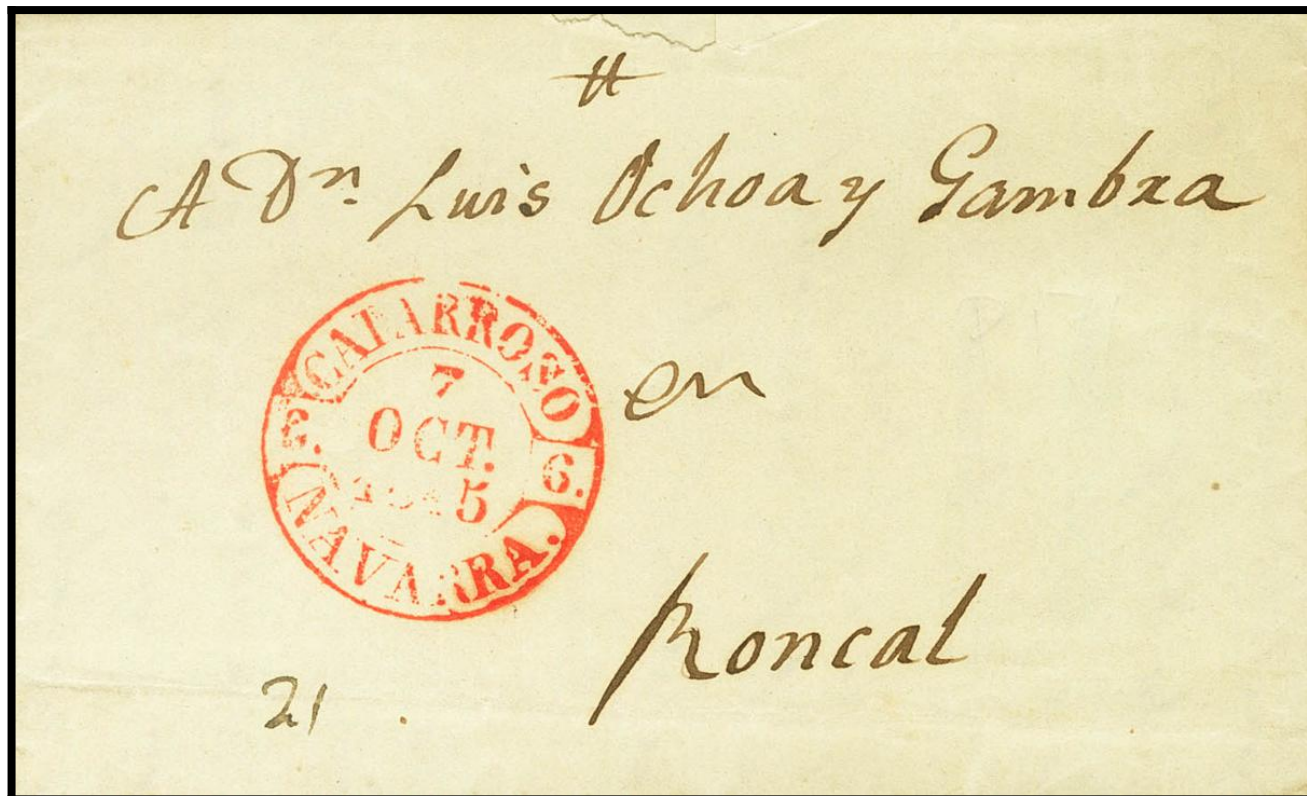 A Dn. Luis Ochoa y Gambra
CAPARROSO
7
OCT.
6.
NAVARRA.
en
Roncal
21